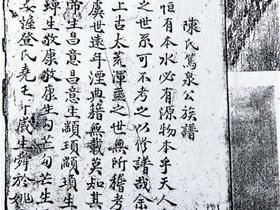 陳氏篤泉公族譜
恒有本水必有源物本乎天人
之世系可不考之以修諸哉余
上古太荒渾噩之世無所稽考
虞世遠年湮典籍無載莫知其
帝生昌意昌意生顓頊顓頊生
蟬生敬康敬康生句芒句芒生
登氏堯七十歲生舜於姚